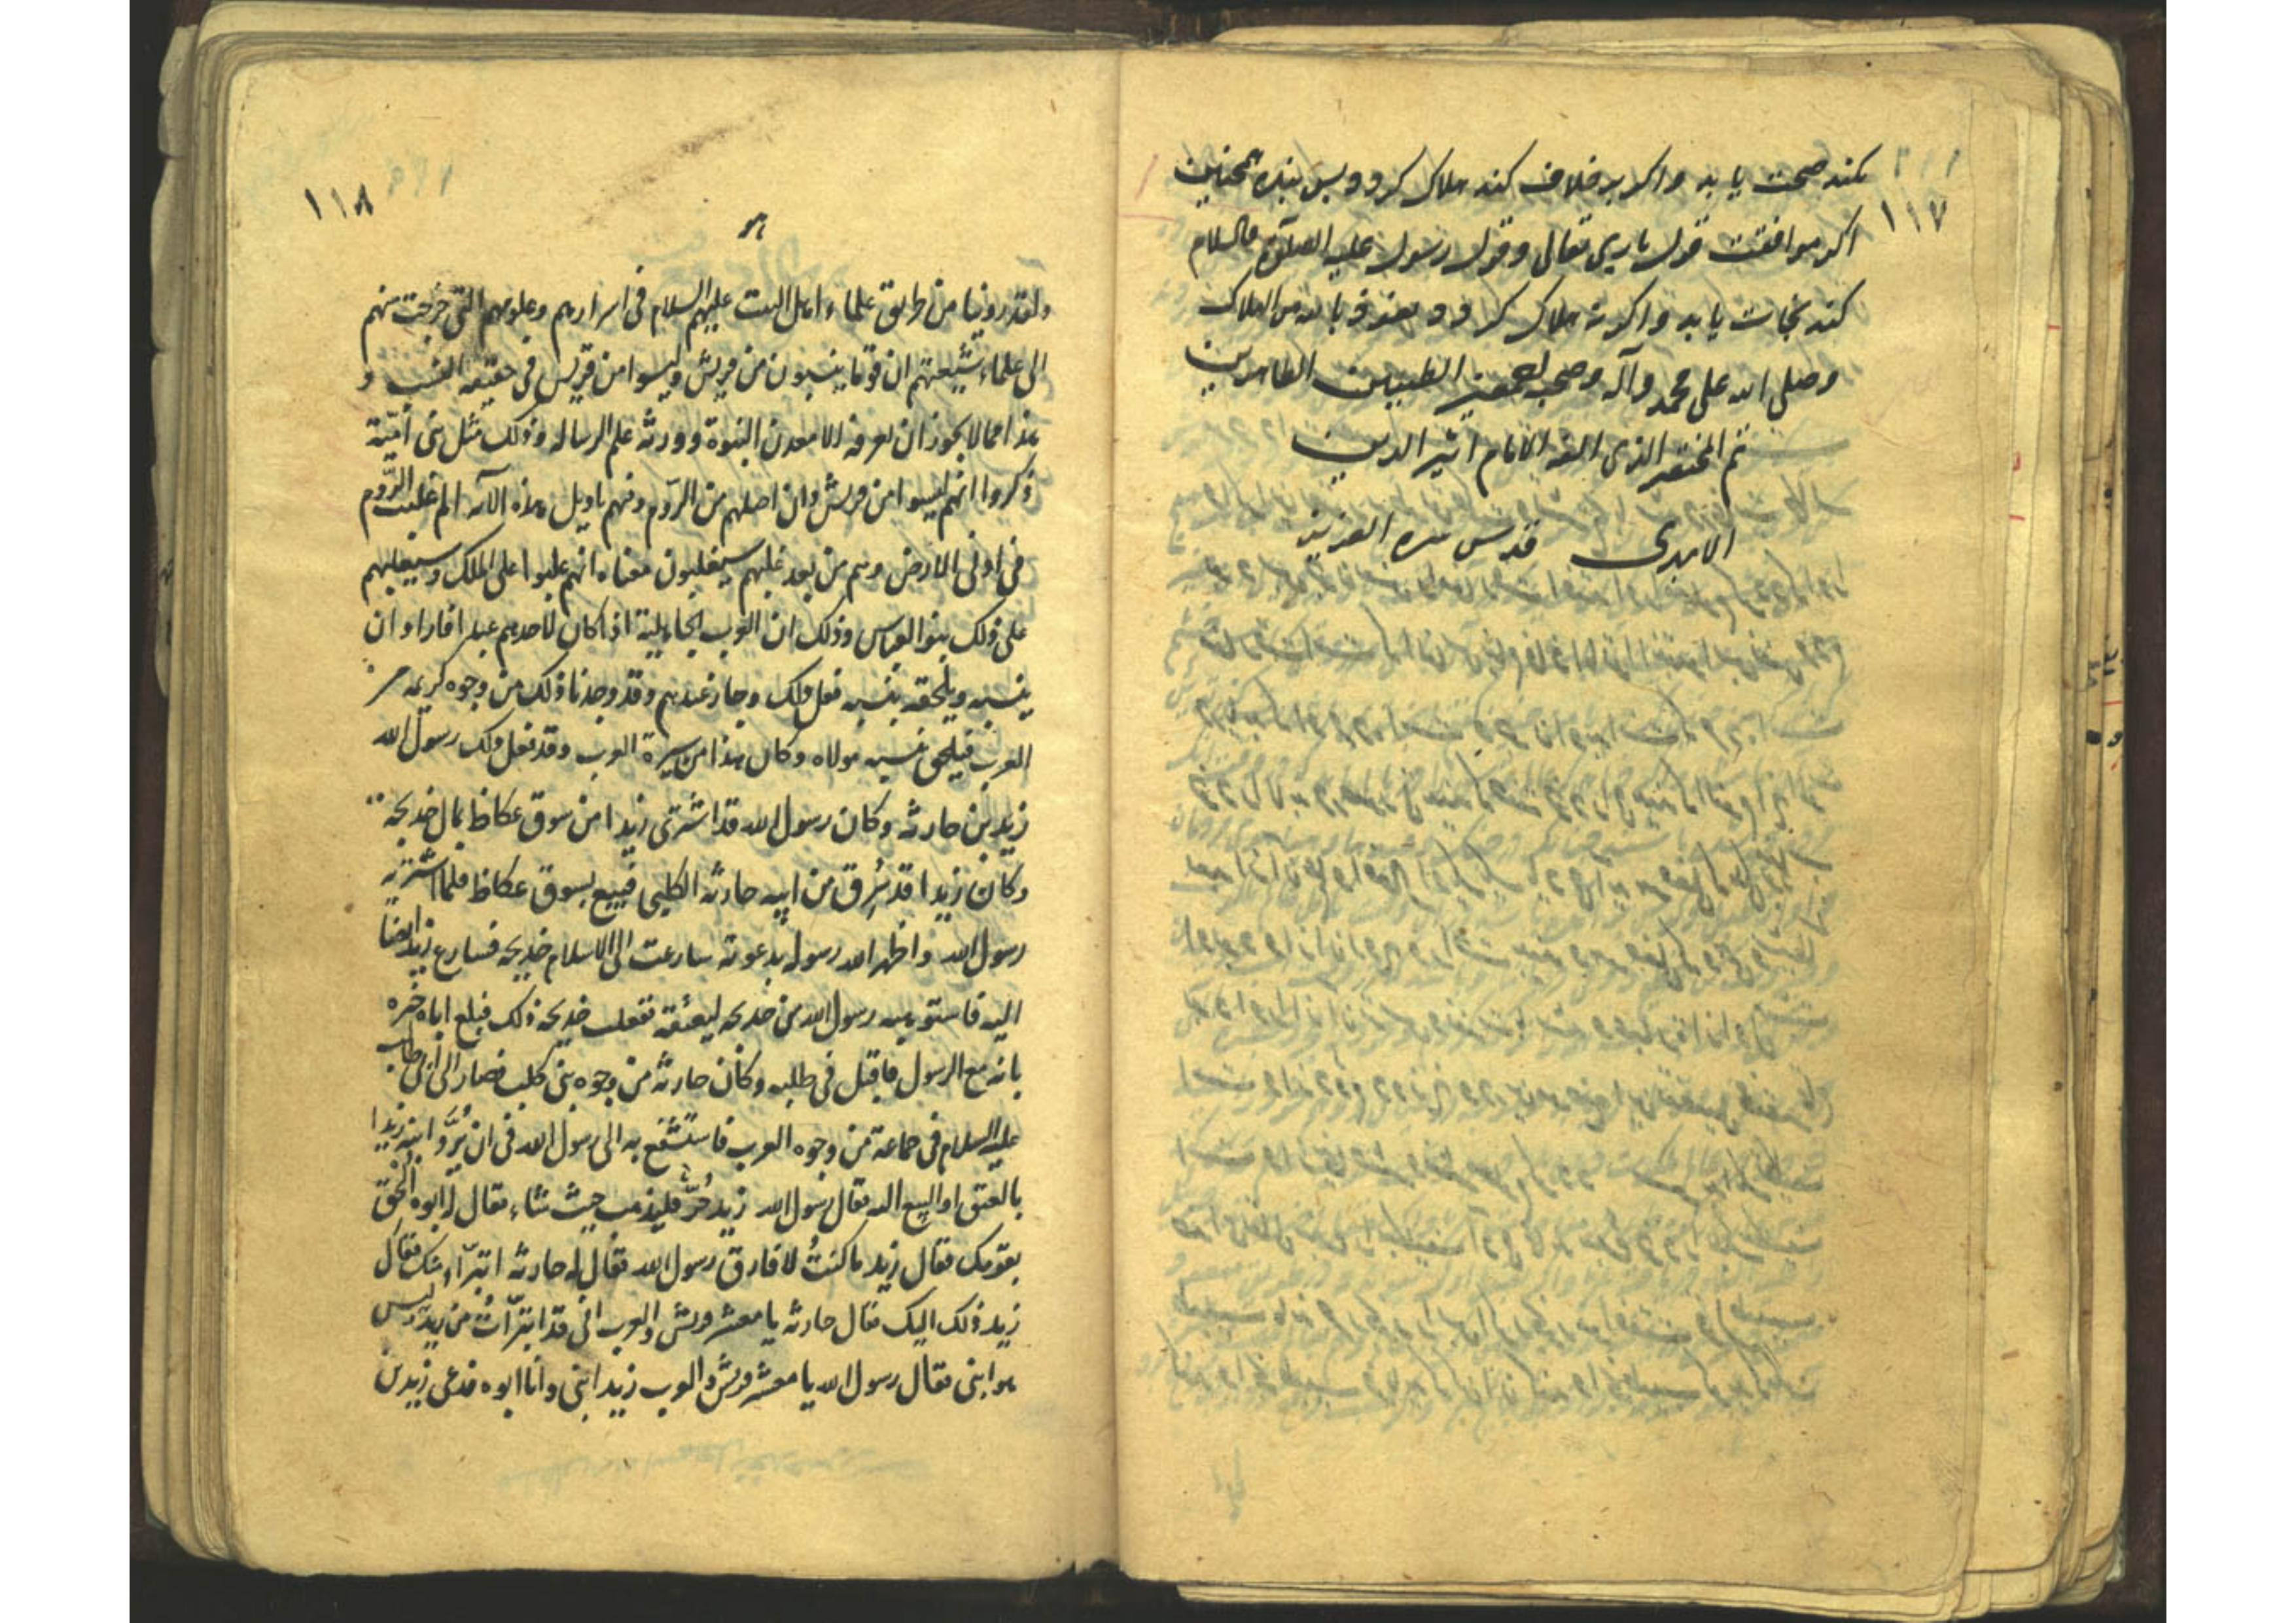 ١١٧
بکند صحت یابد و اکر بر خلاف کند هلاک کردد پس بنده همچنین
اکر موافقت قول باری تعالی و قول رسول علیه الصلوة والسلام
کند نجات یابد و اکر نه هلاک کردد نعوذ بالله من الهلاک
وصلی الله علی محمد وآله وصحبه اجمعین الطیبین الطاهرین
تم المختصر الذی الفه الامام اثیر الدین
الابهری قدس سره العزیز
١١٨
هو
ولقد روینا من طریق علماء اهل البیت علیهم السلام فی اسرارهم وعلومهم التی خرجت منهم
الی علماء شیعتهم ان قوما ینسبون من قریش ولیسوا من قریش فی حقیقه النسب و
هذا مما لا یجوز ان یعرفه الا معدن النبوة وورثة علم الرساله وذلک مثل بنی أمیّة
ذکروا انهم لیسوا من قریش وان اصلهم من الرّوم وفیهم تاویل هذه الآیه الم غلبت الرّوم
فی ادنی الارض وهم من بعد غلبهم سیغلبون معناه انهم غلبوا علی الملک وسیغلبهم
علی ذلک بنو العباس وذلک ان العرب الجاهلیة اذا کان لاحدهم عبد افاراد ان
ینسبه ویلحقه بنسبه فعل ذلک وجاز عندهم وقد وجدنا ذلک من وجوه کریمه من
العرب فیلحق بنسبه مولاه وکان هذا من سیرة العرب وقد فعل ذلک رسول الله
زید بن حارثه وکان رسول الله قد اشتری زیدا من سوق عکاظ بمال خدیجه
وکان زیدا قد سُرِق من ابیه حارثه الکلبی فبیع بسوق عکاظ فلما اشتریه
رسول الله واظهر الله رسوله بدعوته سارعت الی الاسلام خدیجه فسارع زید ایضا
الیه فاستوهبه رسول الله من خدیجه لیعتقه ففعلت خدیجه ذلک فبلغ اباه خبره
بانه مع الرسول فاقبل فی طلبه وکان حارثه من وجوه بنی کلب فصار الی أبی طالب
علیه السلام فی جماعة من وجوه العرب فاستشفع به الی رسول الله فی ان یُرَدَّ ابنه زیدا
بالعتق او البیع الیه فقال رسول الله زید حُرّ فلیذهب حیث شاء فقال له ابوه اِلْحَق
بقومک فقال زید ما کنتُ لافارق رسول الله فقال له حارثه اتبرّأ منک فقال
زید ذلک الیک فقال حارثه یا معشر قریش والعرب انی قد تبرّأتُ من زید ولیس
هو ابنی فقال رسول الله یا معشر قریش والعرب زید ابنی وانا ابوه فدعی زید بن